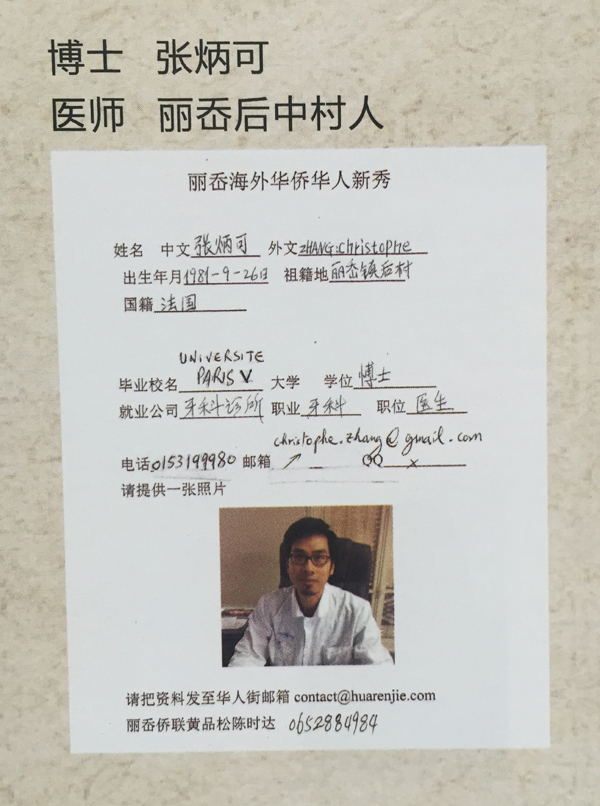 博士 张炳可
医师 丽岙后中村人
丽岙海外华侨华人新秀
姓名 中文张炳可 外文ZHANG:christophe
出生年月1981-9-26日 祖籍地丽岙镇后村
国籍法国
UNIVERSITE
毕业校名PARIS V 大学 学位博士
就业公司牙科诊所 职业牙科 职位医生
christophe.zhang@gmail.com
电话0153199980 邮箱↗ QQ x
请提供一张照片
请把资料发至华人街邮箱 contact@huarenjie.com
丽岙侨联黄品松陈时达 0652884984